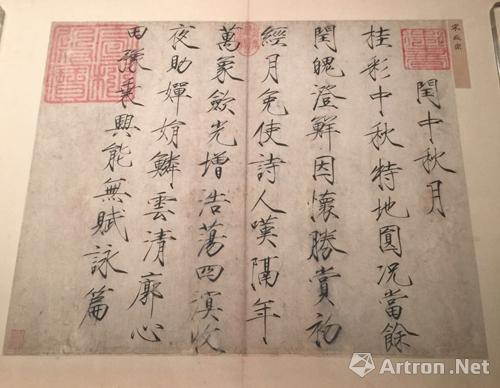 閏中秋月
桂彩中秋特地圓況當餘
閏魄澄鮮因懷勝賞初
經月免使詩人嘆隔年
萬象斂光增浩蕩四溟收
夜助嬋娟鱗雲清廓心
田豫乘興能無賦詠篇
Artron.Net